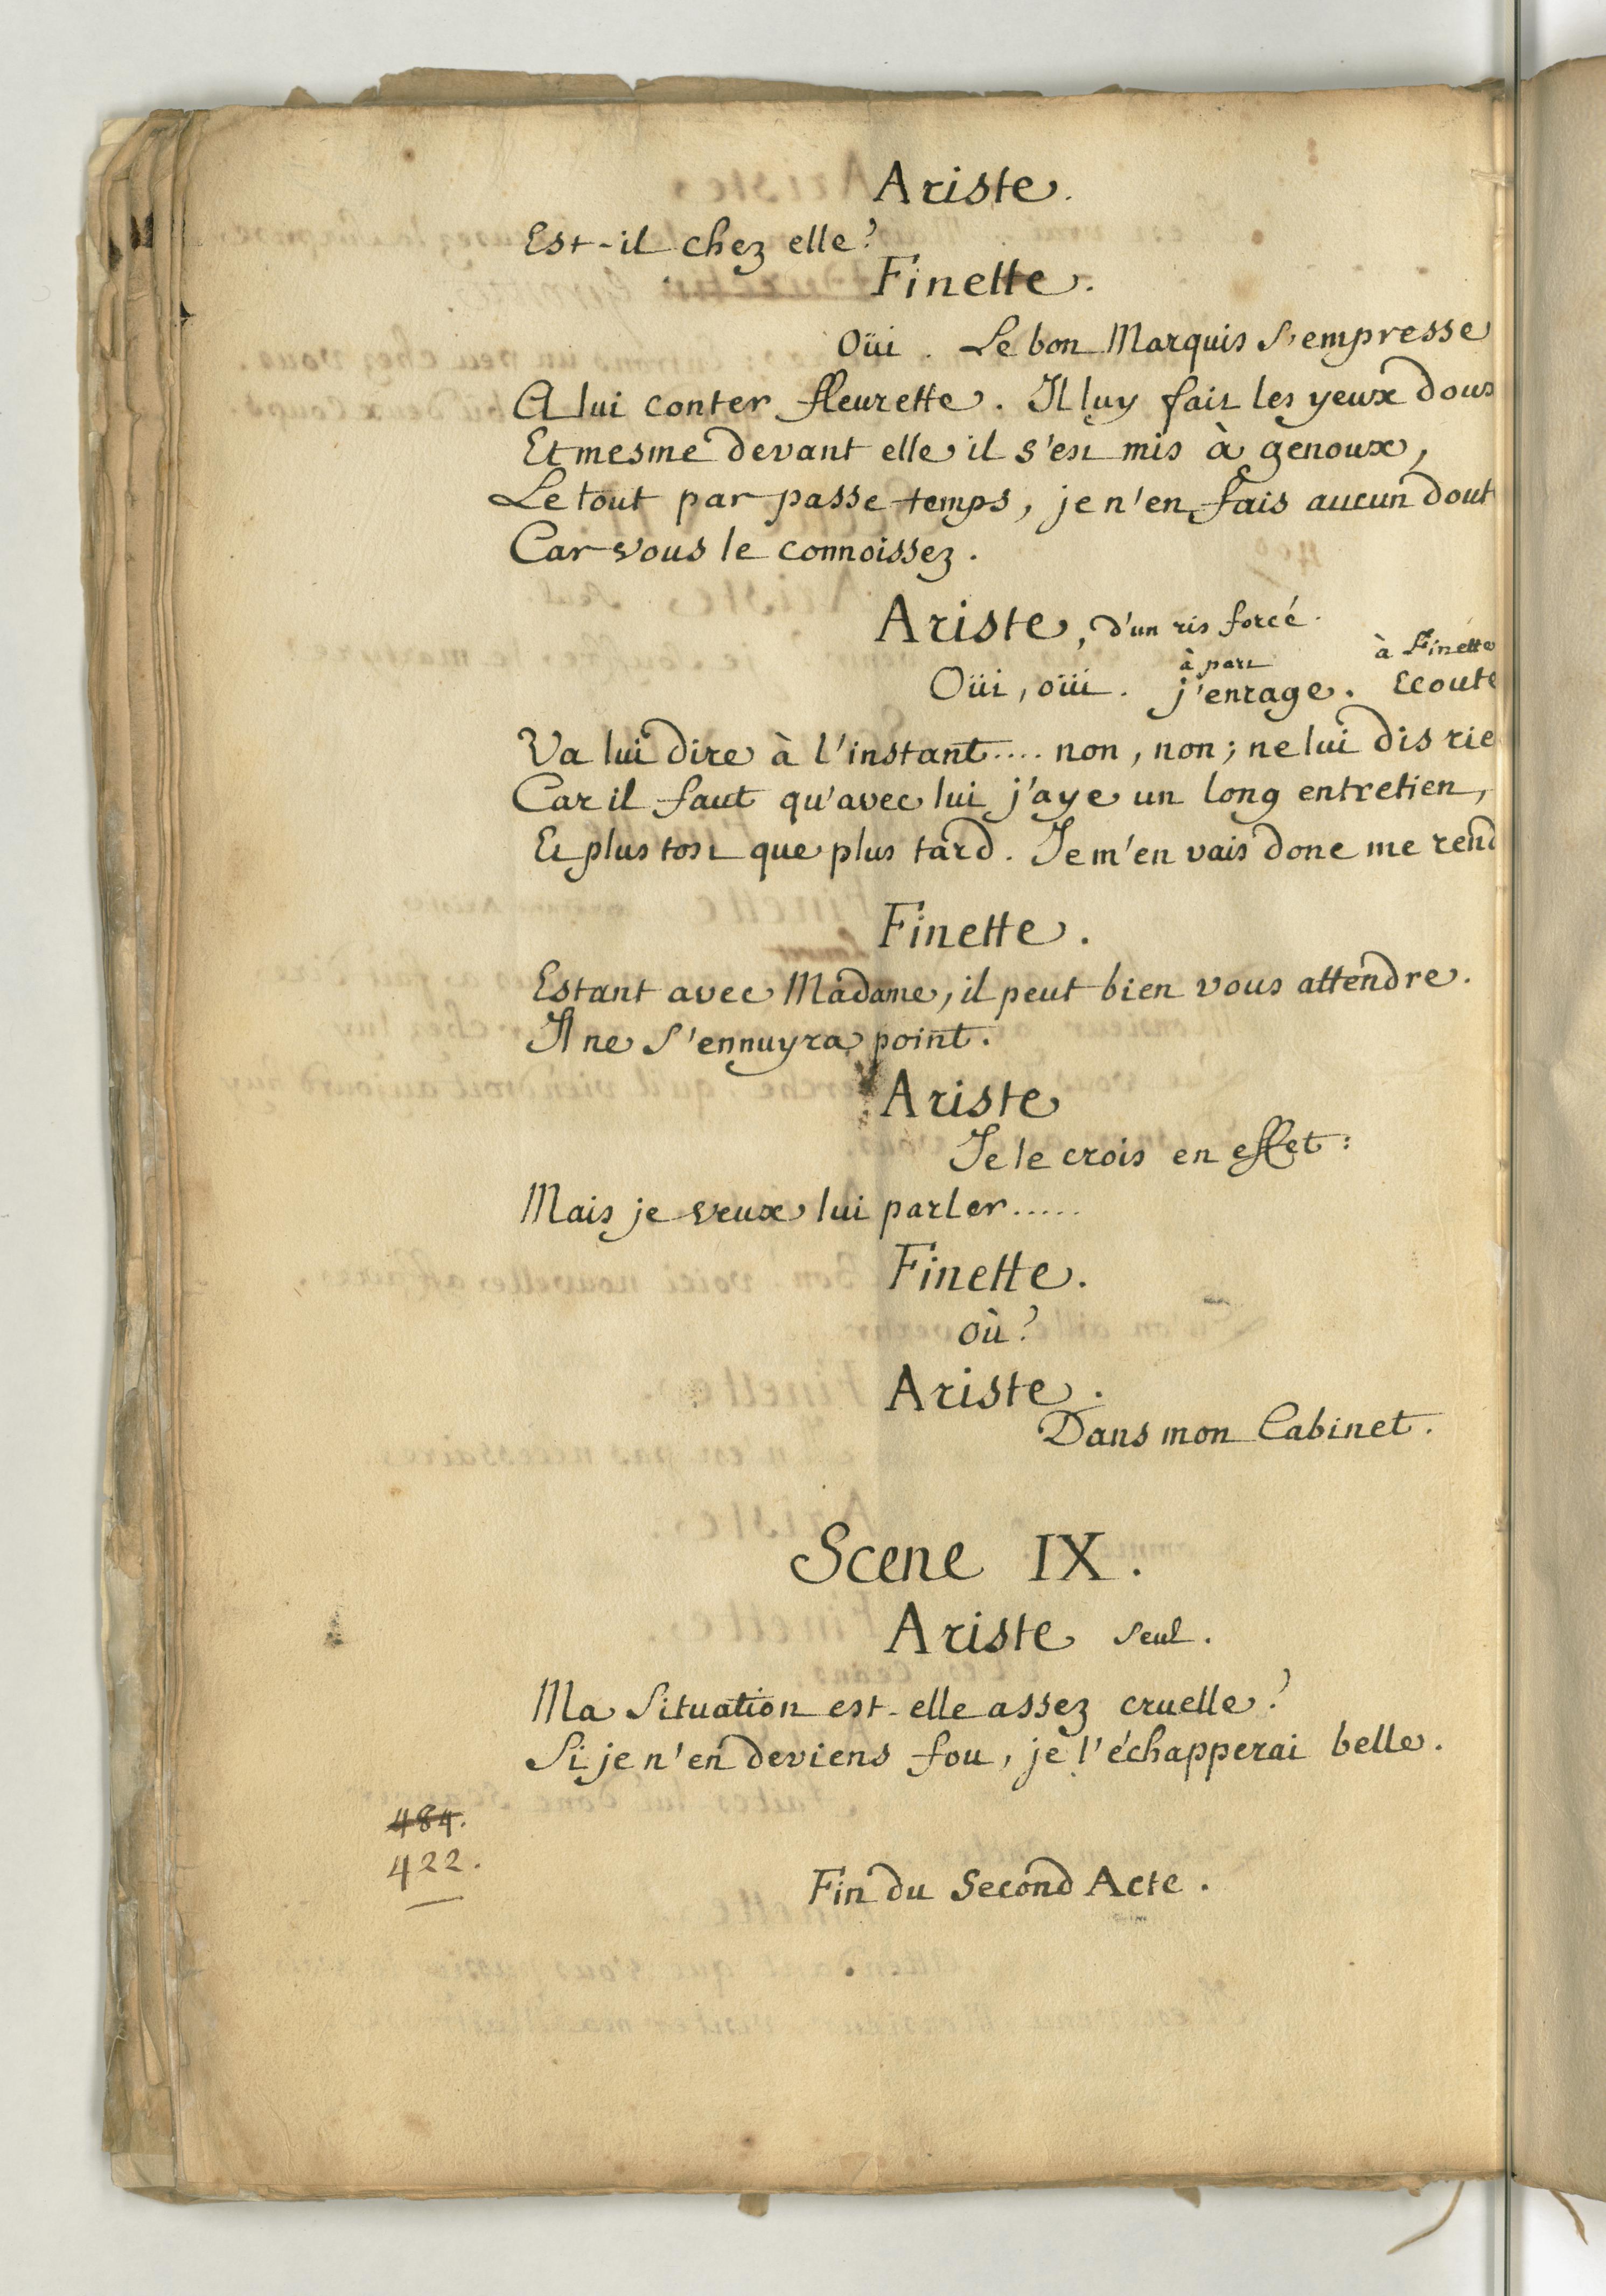 Ariste.
Est-il chez elle?
Finette.
Oüi. Le bon Marquis s'empresse
A lui conter fleurette. Il luy fait les yeux doux
Et mesme devant elle il s'est mis à genoux,
Le tout par passe-temps, je n'en fais aucun dout
Car vous le connoissez.
Ariste, d'un ris forcé.
à part à Finette
Oüi, oüi. j'enrage. Ecoute
Va lui dire à l'instant.... non, non; ne lui dis rie
Car il faut qu'avec lui j'aye un long entretien,
Et plus tost que plus tard. Je m'en vais donc me rend
Finette.
Estant avec Madame, il peut bien vous attendre.
Il ne s'ennuyra point.
Ariste
Je le crois en effet:
Mais je veux lui parler.....
Finette.
où?
Ariste.
Dans mon Cabinet.
Scene IX.
Ariste seul.
Ma situation est-elle assez cruelle?
Si je n'en deviens fou, je l'échapperai belle.
484.
422.
Fin du Second Acte.